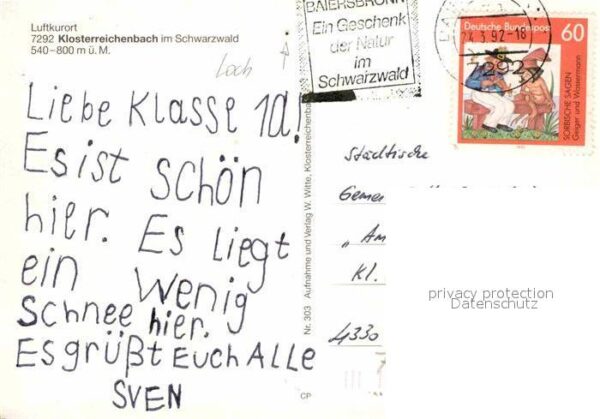 Luftkurort
7292 Klosterreichenbach im Schwarzwald
540-800 m ü. M.
Loch
Liebe Klasse 1a!
Es ist schön
hier. Es liegt
ein wenig
Schnee hier.
Es grüßt Euch Alle
SVEN
Nr. 303 Aufnahme und Verlag W. Witte, Klosterreichenbach
CP
BAIERSBRONN
Ein Geschenk
der Natur
im
Schwarzwald
Deutsche Bundespost
60
SORBISCHE SAGEN
Geiger und Wassermann
Städtische
Gemei
"Am
Kl.
4330
privacy protection
Datenschutz